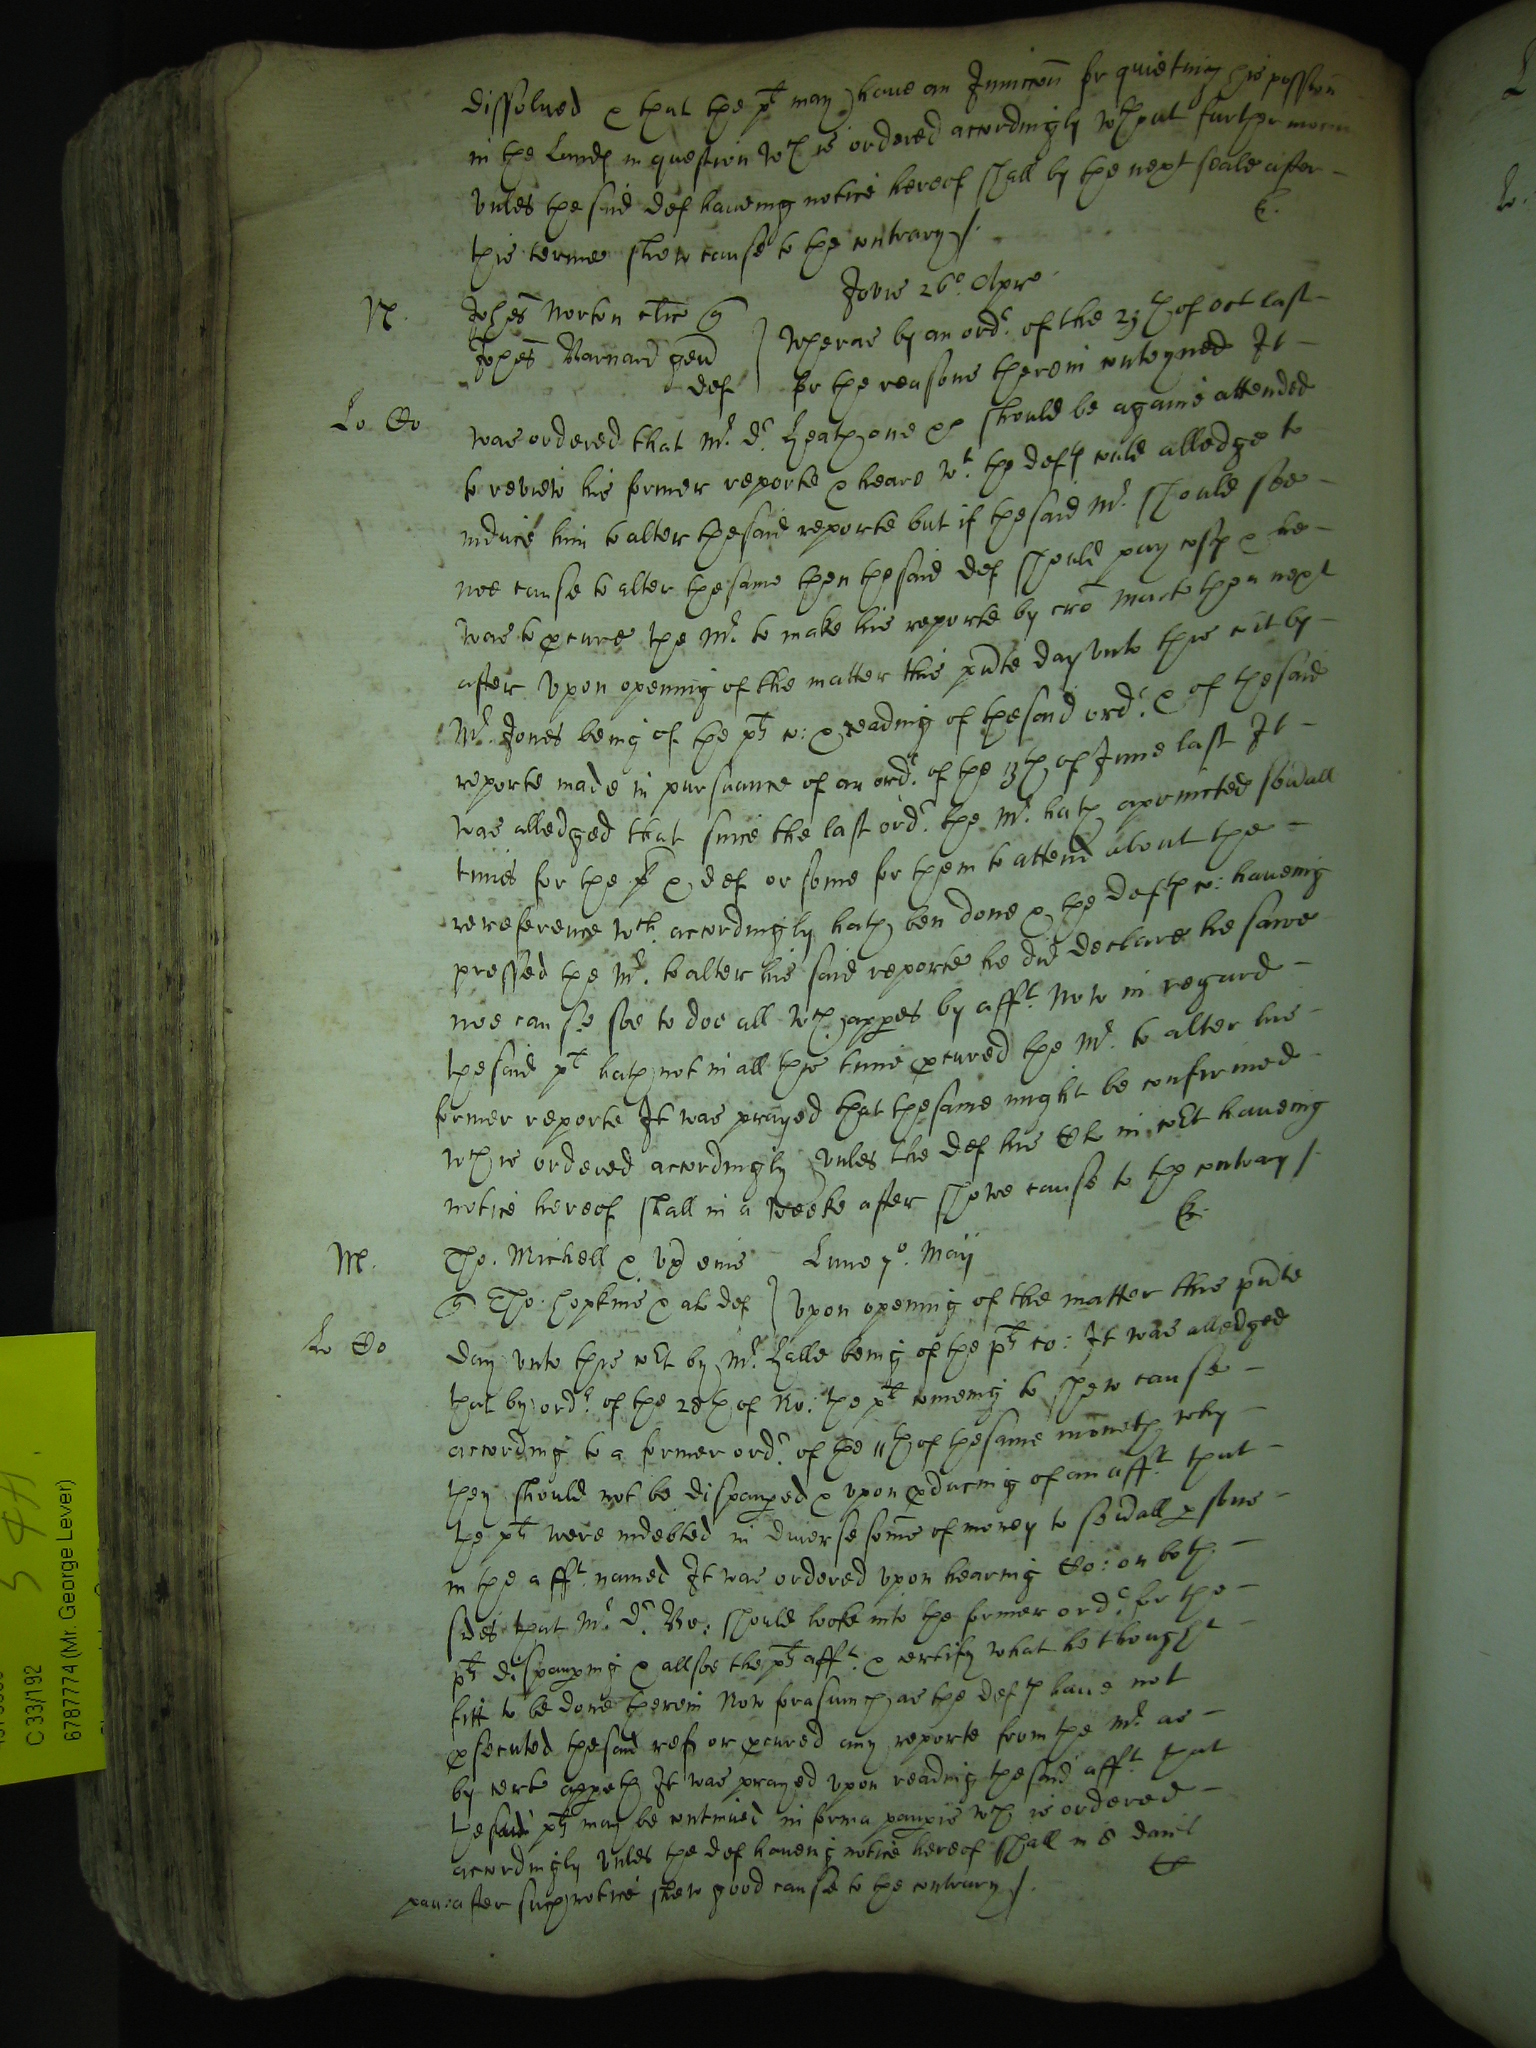 dissolued & that the plt may haue an Iniuccon for quieting his possion
in the Landes in question wch is ordered accordingly wthout further mocon
vnles the said def haueing notice hereof shall by the next seale after
this terme shew cause to the contrary /.
Jovis 26o. Apre
N.
Johes Norton clic
Johes Barnard gen
def
Wheras by an ordr. of the 29th of Oct last
for the reasons therein conteyned It
was ordered that Mr. Dr. should be againe attended
to review his former reporte & heare wt. the deftes could alledge to
induce him to alter the said reporte but if the said Mr. should see
noe cause to alter the same then the said def should pay costes & he
was to pcure the Mr. to make his reporte by cro then next
after Vpon opening of the matter this pnte day vnto this cot by
Mr. Jones being of the pltes co: & reading of the said ordr. & of the said
reporte made in pursuance of an ordr. of the 13th of June last It
was alledged that since the last ordr. the Mr. hath apointed seuall
times for the plt & def or some for them to attend about the
rereference wch accordingly hath ben done & the deftes co: haueing
pressed the Mr. to alter his said reporte he did declare he sawe
noe cause soe to doe all wch appes by afft. Now in regard
the said plt hath not in all this time pcured the Mr. to alter his
former reporte It was prayed that the same might be confirmed
wch is ordered accordingly vnles the def his in cot haueing
notice hereof shall in a weeke after shewe cause to the contrary /.
M.
Tho. Michell & vx eius
Lune 7o. Maij
Tho: Hopkins & al def
Vpon opening of the matter this pnte
day vnto this cot by Mr. Halle being of the pltes co: It was alledged
that by ordr. of the 28th of No: the plt comeing to shew cause
according to a former ordr. of the 11th of the same moneth why
they should not be dispaupd & vpon pducing of an afft. that
the pltes were indebted in diuerse somes of money to seuall psons
in the afft. named It was ordered vpon hearing Co: on both
sides that Mr. Dr. should looke into the former ordr. for the
pltes dispauping & allsoe the pltes afft. & certify what he thought
fitt to be done therein Now forasmuch as the deftes haue not
psecuted the said ref or pcured any reporte from the Mr. as
by cert appeth It was prayed vpon reading the said afft. that
the said pltes may be continued in forma paupis wch is ordered
accordingly vnles the def haueing notice hereof shall in 8 daies
pau: after such notice shew good cause to the contrary /.
C 33/192
6787774 (Mr. George Lever)